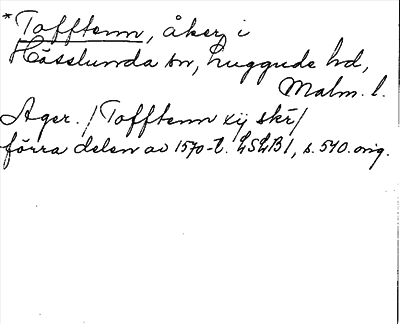 *Tofftenn, åker, i
Hässlunda sn, Luggude hd,
Malm. l.
Ager. /Tofftenn xij skr/
förra delen av 1570-t. LSLB1, s. 540. orig.